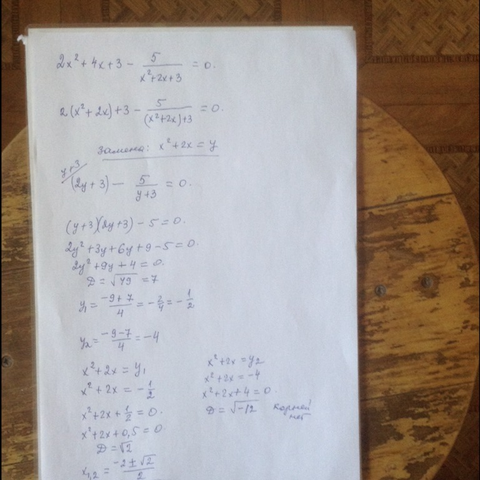 2x² + 4x + 3 - 5/(x²+2x+3) = 0.
2(x² + 2x) + 3 - 5/((x²+2x)+3) = 0.
Замена: x² + 2x = y
y+3/
(2y + 3) - 5/(y+3) = 0.
(y+3)(2y+3) - 5 = 0.
2y² + 3y + 6y + 9 - 5 = 0.
2y² + 9y + 4 = 0.
D = √49 = 7
y₁ = (-9+7)/4 = -2/4 = -1/2
y₂ = (-9-7)/4 = -4
x² + 2x = y₁
x² + 2x = -1/2
x² + 2x + 1/2 = 0.
x² + 2x + 0,5 = 0.
D = √2
x₁,₂ = (-2 ± √2)/2
x² + 2x = y₂
x² + 2x = -4
x² + 2x + 4 = 0.
D = √-12 корней
нет